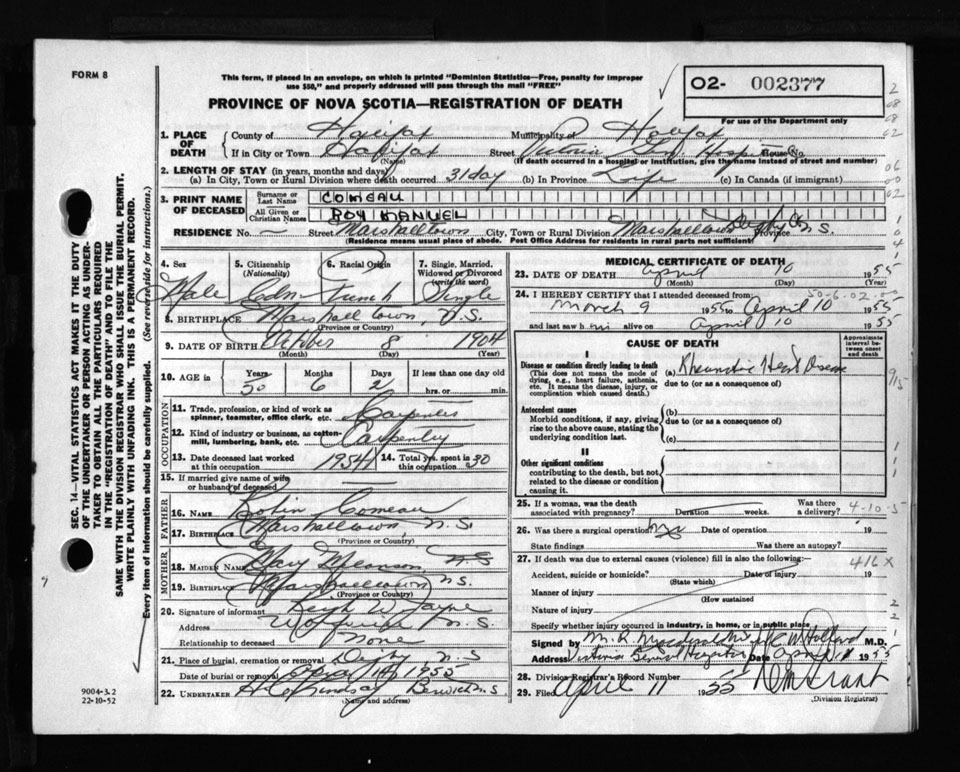 FORM 8
This form, if placed in an envelope, on which is printed "Dominion Statistics—Free, penalty for improper
use $50," and properly addressed will pass through the mail "FREE"
PROVINCE OF NOVA SCOTIA—REGISTRATION OF DEATH
02- 002377
For use of the Department only
1. PLACE OF DEATH
County of Halifax Municipality of Halifax
If in City or Town Halifax Street Victoria Gen. Hospital House No.
(Name) (If death occurred in a hospital or institution, give the name instead of street and number)
2. LENGTH OF STAY (in years, months and days)
(a) In City, Town or Rural Division where death occurred 31 day (b) In Province Life (c) In Canada (if immigrant)
3. PRINT NAME OF DECEASED
Surname or Last Name COMEAU
All Given or Christian Names ROY MANUEL
RESIDENCE No. — Street Marshalltown City, Town or Rural Division Marshalltown Digby Co. Province N.S.
(Residence means usual place of abode. Post Office Address for residents in rural parts not sufficient)
4. Sex Male
5. Citizenship (Nationality) Cdn
6. Racial Origin French
7. Single, Married, Widowed or Divorced (write the word) Single
8. BIRTHPLACE Marshalltown, N.S.
(Province or Country)
9. DATE OF BIRTH October 8 1904
(Month) (Day) (Year)
10. AGE in Years Months Days If less than one day old
50 6 2 hrs. or min.
OCCUPATION
11. Trade, profession, or kind of work as spinner, teamster, office clerk, etc. Carpenter
12. Kind of industry or business, as cotton-mill, lumbering, bank, etc. Carpentry
13. Date deceased last worked at this occupation 1954
14. Total yrs. spent in this occupation 30
15. If married give name of wife or husband of deceased —
FATHER
16. Name Robin Comeau
17. Birthplace Marshalltown N.S.
(Province or Country)
MOTHER
18. Maiden Name Mary N.S.
19. Birthplace Marshalltown, N.S.
(Province or Country)
20. Signature of informant W. Jayne
Address Wolfville N.S.
Relationship to deceased None
21. Place of burial, cremation or removal Digby N.S
Date of burial or removal 1955
22. UNDERTAKER Lindsay Berwick N.S
(Name and address)
MEDICAL CERTIFICATE OF DEATH
23. DATE OF DEATH April 10 1955
(Month) (Day) (Year)
24. I HEREBY CERTIFY that I attended deceased from:
March 9 1955 to April 10 1955
and last saw him alive on April 10 1955
CAUSE OF DEATH
Approximate interval between onset and death
I
Disease or condition directly leading to death (a) Rheumatic Heart Disease
(This does not mean the mode of dying, e.g., heart failure, asthenia, etc. It means the disease, injury, or complication which caused death.)
due to (or as a consequence of)
Antecedent causes
Morbid conditions, if any, giving rise to the above cause, stating the underlying condition last.
(b)
due to (or as a consequence of)
(c)
II
Other significant conditions
contributing to the death, but not related to the disease or condition causing it.
25. If a woman, was the death associated with pregnancy? Duration weeks. Was there a delivery?
4-10-5
26. Was there a surgical operation? Date of operation 19
State findings Was there an autopsy?
27. If death was due to external causes (violence) fill in also the following:
416 X
Accident, suicide or homicide? Date of injury 19
(State which)
Manner of injury
(How sustained
Nature of injury
Specify whether injury occurred in industry, in home, or in public place
Signed by M.D.
Address Victoria General Hospital Date April 11 1955
28. Division Registrar's Record Number
29. Filed April 11 1955
(Division Registrar)
SEC. 14—VITAL STATISTICS ACT MAKES IT THE DUTY
OF THE UNDERTAKER OR PERSON ACTING AS UNDER-
TAKER TO OBTAIN ALL THE PARTICULARS REQUIRED
IN THE "REGISTRATION OF DEATH" AND TO FILE THE
SAME WITH THE DIVISION REGISTRAR WHO SHALL ISSUE THE BURIAL PERMIT.
WRITE PLAINLY WITH UNFADING INK. THIS IS A PERMANENT RECORD.
Every item of information should be carefully supplied. (See reverse side for instructions.)
9004-3.2
22-10-52